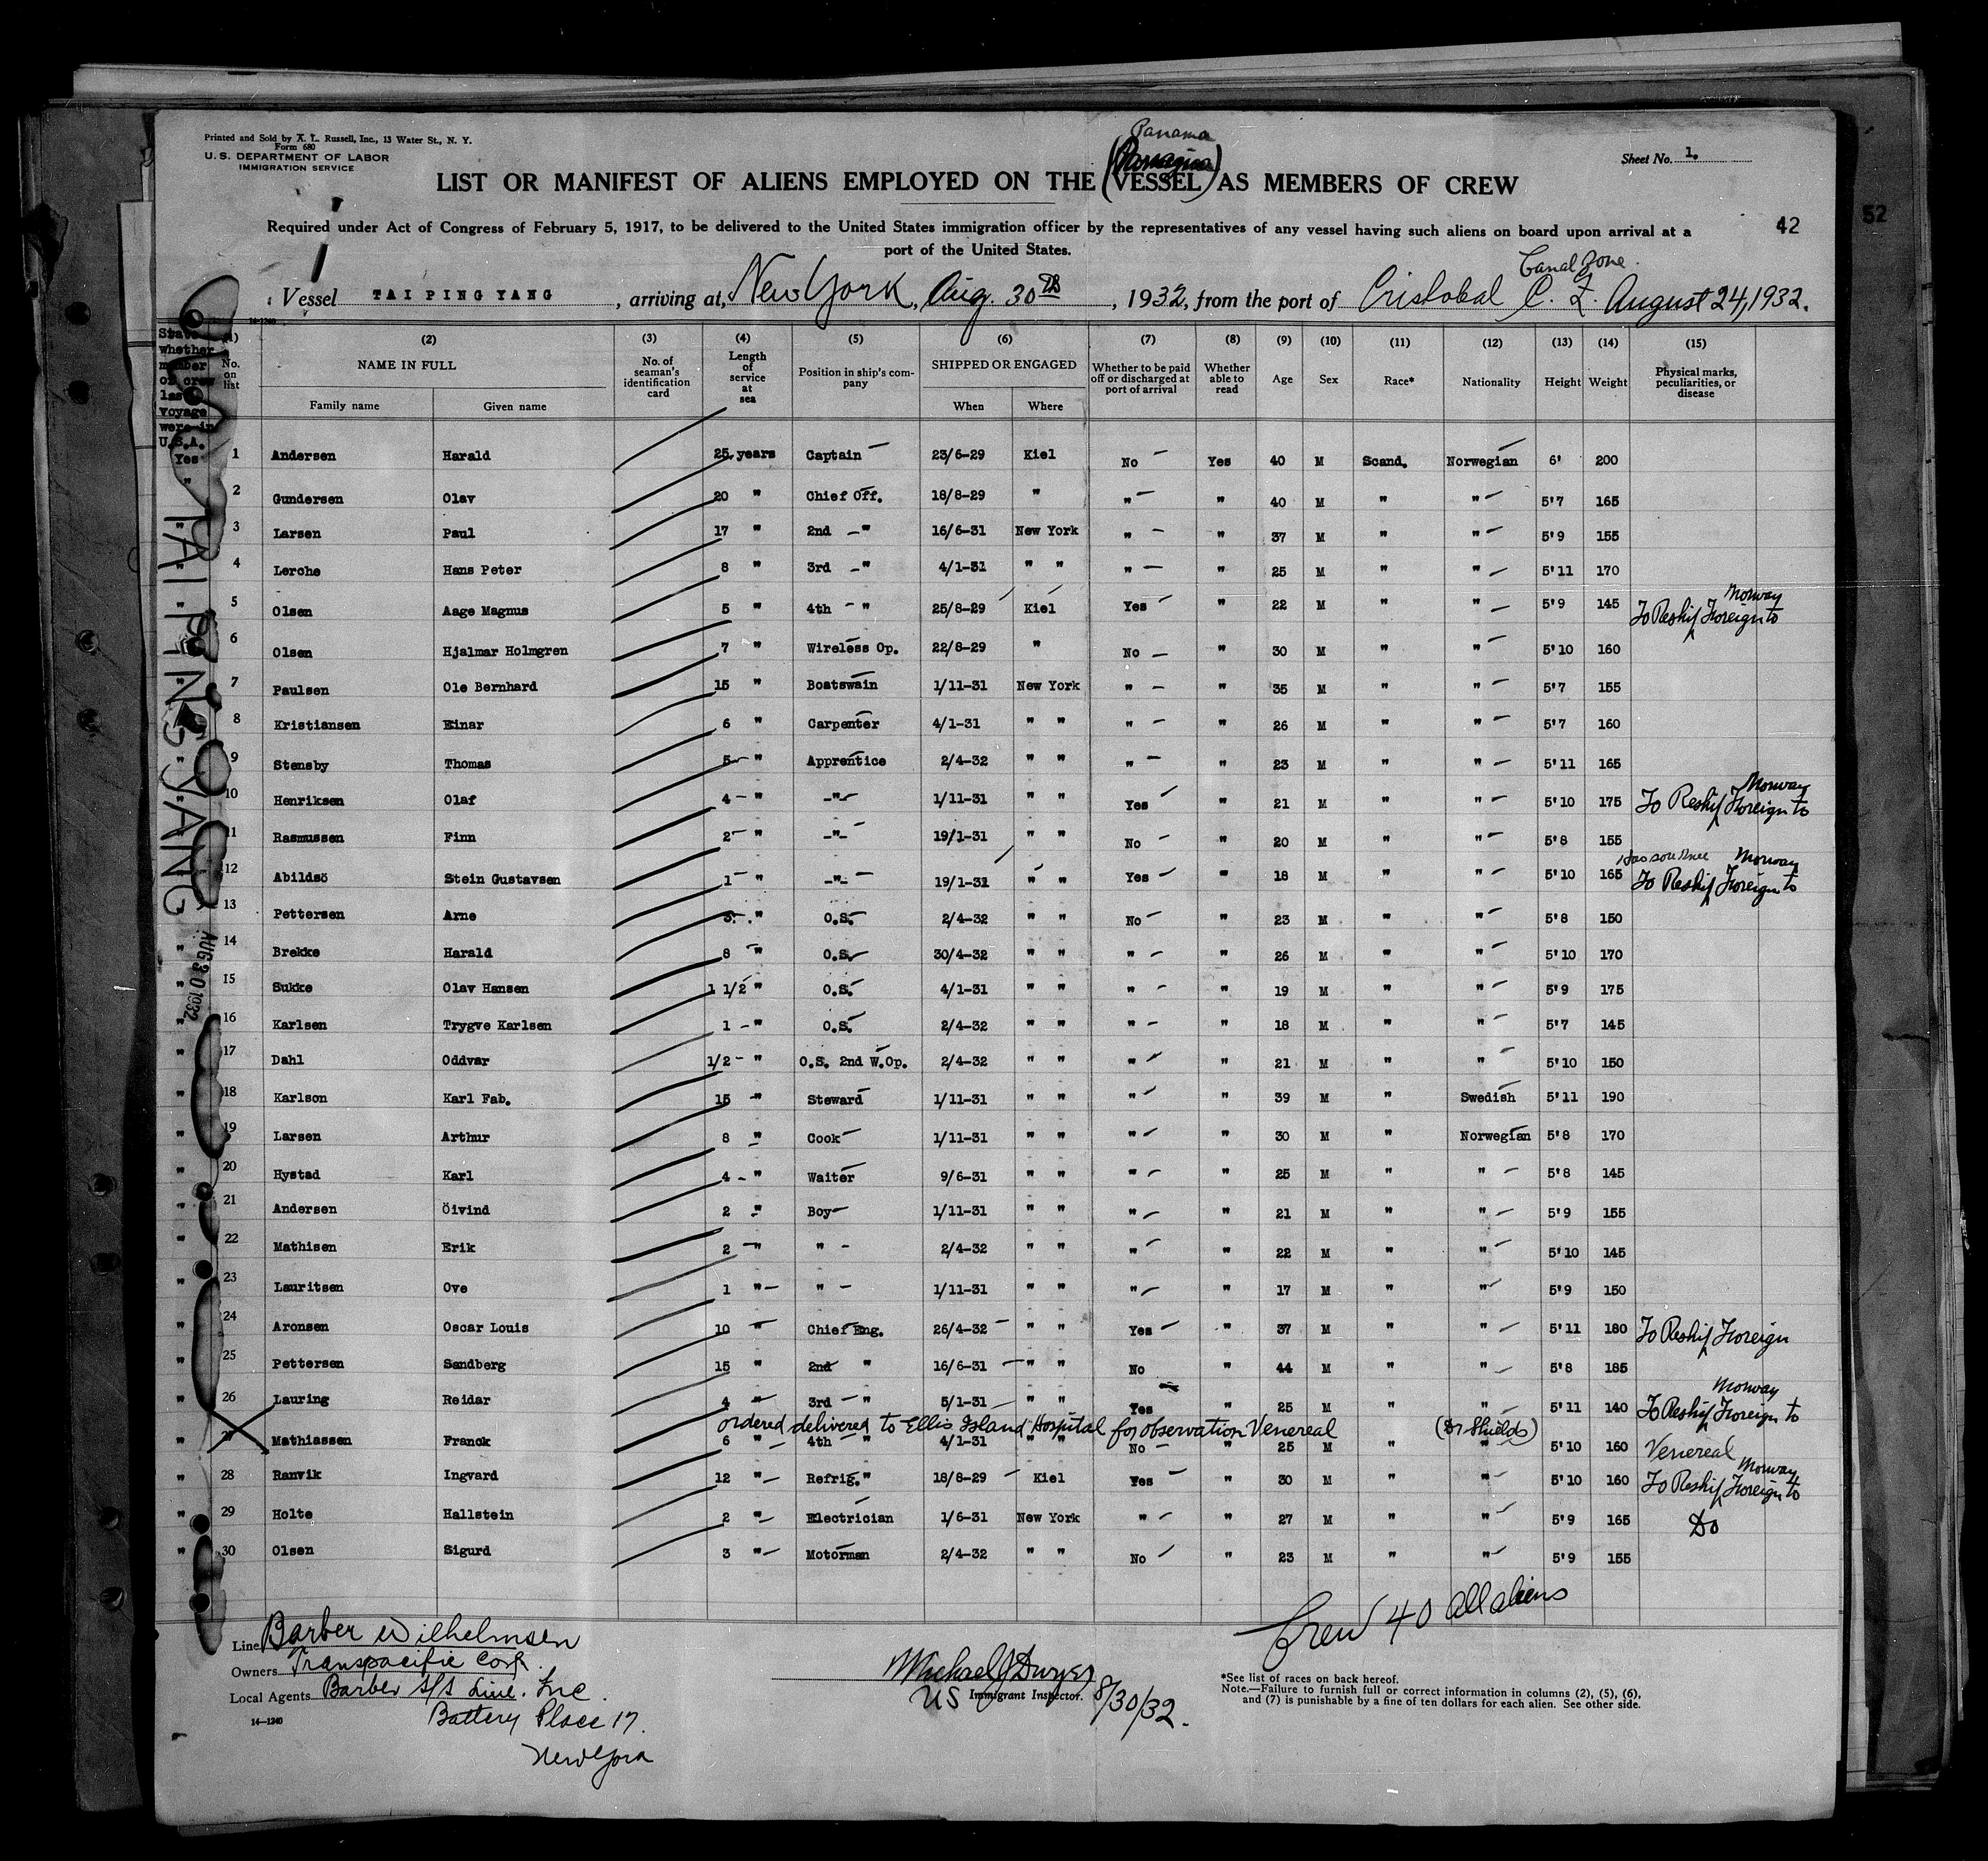 Printed and Sold by A. L. Russell, Inc., 13 Water St., N. Y.
Form 680
U. S. DEPARTMENT OF LABOR
IMMIGRATION SERVICE
Panama
Sheet No. 1.
LIST OR MANIFEST OF ALIENS EMPLOYED ON THE (VESSEL) AS MEMBERS OF CREW
Required under Act of Congress of February 5, 1917, to be delivered to the United States immigration officer by the representatives of any vessel having such aliens on board upon arrival at a
port of the United States.
42
52
Canal Zone.
Vessel TAI PING YANG, arriving at, New York, Aug. 30th, 1932, from the port of Cristobal C. Z. August 24, 1932.
14-1240
State whether member of crew last voyage were in U.S.A.
(1) No. on list
(2) NAME IN FULL Family name Given name
(3) No. of seaman's identification card
(4) Length of service at sea
(5) Position in ship's company
(6) SHIPPED OR ENGAGED When Where
(7) Whether to be paid off or discharged at port of arrival
(8) Whether able to read
(9) Age
(10) Sex
(11) Race*
(12) Nationality
(13) Height
(14) Weight
(15) Physical marks, peculiarities, or disease
Yes 1 Andersen Harald 25 years Captain 23/6-29 Kiel No Yes 40 M Scand. Norwegian 6' 200
" 2 Gundersen Olav 20 " Chief Off. 18/8-29 " " " 40 M " " 5'7 165
" 3 Larsen Paul 17 " 2nd -" 16/6-31 New York " " 37 M " " 5'9 155
" 4 Lerche Hans Peter 8 " 3rd -" 4/1-31 " " " " 25 M " " 5'11 170
" 5 Olsen Aage Magnus 5 " 4th -" 25/8-29 Kiel Yes " 22 M " " 5'9 145 To Reship Foreign to Norway
" 6 Olsen Hjalmar Holmgren 7 " Wireless Op. 22/8-29 " No " 30 M " " 5'10 160
" 7 Paulsen Ole Bernhard 15 " Boatswain 1/11-31 New York " " 35 M " " 5'7 155
" 8 Kristiansen Einar 6 " Carpenter 4/1-31 " " " " 26 M " " 5'7 160
" 9 Stensby Thomas 5 " Apprentice 2/4-32 " " " " 23 M " " 5'11 165
" 10 Henriksen Olaf 4 " -"- 1/11-31 " " Yes " 21 M " " 5'10 175 To Reship Foreign to Norway
" 11 Rasmussen Finn 2 " -"- 19/1-31 " " No " 20 M " " 5'8 155
" 12 Abildsö Stein Gustavsen 1 " -"- 19/1-31 " " Yes " 18 M " " 5'10 165 Has sore knee To Reship Foreign to Norway
" 13 Pettersen Arne 3 " O.S. 2/4-32 " " No " 23 M " " 5'8 150
" 14 Brekke Harald 8 " O.S. 30/4-32 " " " " 26 M " " 5'10 170
" 15 Sukke Olav Hansen 1 1/2 " O.S. 4/1-31 " " " " 19 M " " 5'9 175
" 16 Karlsen Trygve Karlsen 1 " O.S. 2/4-32 " " " " 18 M " " 5'7 145
" 17 Dahl Oddvar 1/2 " O.S. 2nd W.Op. 2/4-32 " " " " 21 M " " 5'10 150
" 18 Karlson Karl Fab. 15 " Steward 1/11-31 " " " " 39 M " Swedish 5'11 190
" 19 Larsen Arthur 8 " Cook 1/11-31 " " " " 30 M " Norwegian 5'8 170
" 20 Hystad Karl 4 " Waiter 9/6-31 " " " " 25 M " " 5'8 145
" 21 Andersen Öivind 2 " Boy 1/11-31 " " " " 21 M " " 5'9 155
" 22 Mathisen Erik 2 " " 2/4-32 " " " " 22 M " " 5'10 145
" 23 Lauritsen Ove 1 " " 1/11-31 " " " " 17 M " " 5'9 150
" 24 Aronsen Oscar Louis 10 " Chief Eng. 26/4-32 " " Yes " 37 M " " 5'11 180 To Reship Foreign
" 25 Pettersen Sandberg 15 " 2nd " 16/6-31 " " No " 44 M " " 5'8 185
" 26 Lauring Reidar 4 " 3rd " 5/1-31 " " Yes " 25 M " " 5'11 140 To Reship Foreign to Norway
ordered delivered to Ellis Island Hospital for observation Venereal (Dr Shields)
" 27 Mathiassen Franck 6 " 4th " 4/1-31 " " No " 25 M " " 5'10 160 Venereal
" 28 Ranvik Ingvard 12 " Refrig." 18/8-29 Kiel Yes " 30 M " " 5'10 160 To Reship Foreign to Norway
" 29 Holte Hallstein 2 " Electrician 1/6-31 New York " " 27 M " " 5'9 165 Do
" 30 Olsen Sigurd 3 " Motorman 2/4-32 " " No " 23 M " " 5'9 155
TAI PING YANG
AUG 30 1932
Crew 40 all aliens
Line Barber Wilhelmsen
Owners Transpacific Corp.
Local Agents Barber S/S Line. Inc.
Battery Place 17.
New York
14-1240
Michael J Dwyer
US Immigrant Inspector. 8/30/32.
*See list of races on back hereof.
Note.—Failure to furnish full or correct information in columns (2), (5), (6),
and (7) is punishable by a fine of ten dollars for each alien. See other side.